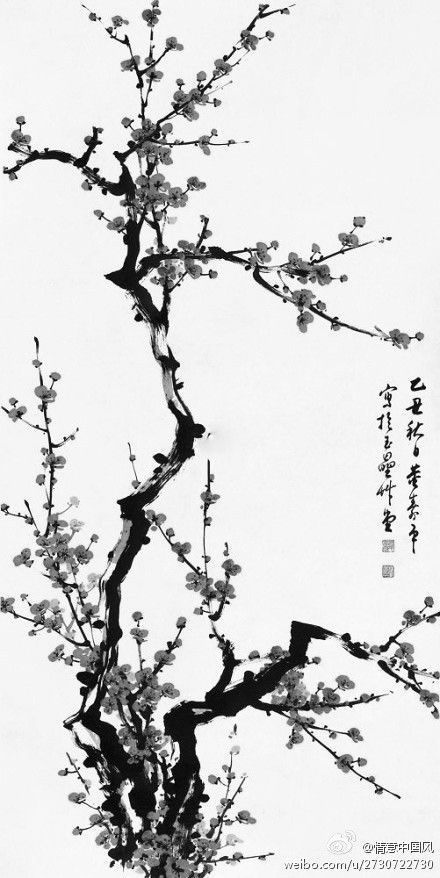 乙丑秋日董寿平
寫於玉竹堂
意中国风
weibo.com/u/2730722730